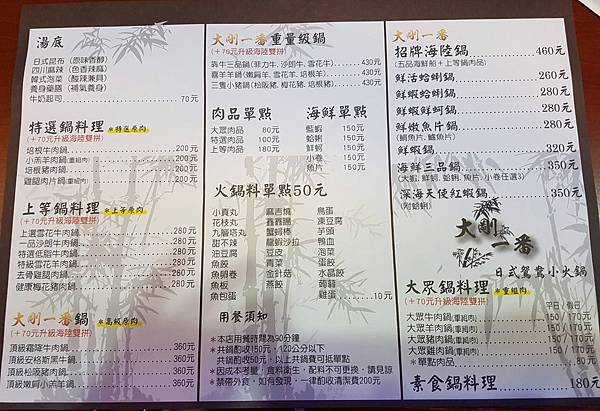 湯底
日式昆布（原味香醇）
四川麻辣（色香辣麻）
韓式泡菜（酸辣兼具）
養身藥膳（補氣養身）
牛奶起司 70元
特選鍋料理 *特選原肉
(+70元升級海陸雙拼)
培根牛肉鍋 200元
小羔羊肉鍋(重組肉) 200元
培根豬肉鍋 200元
雞腿肉片鍋(重組肉) 200元
上等鍋料理 *上等原肉
(+70元升級海陸雙拼)
上選雪花牛肉鍋 280元
一品沙朗牛肉鍋 280元
特選低脂牛肉鍋 280元
特級雪花羊肉鍋 280元
去骨雞腿肉鍋 280元
健康梅花豬肉鍋 280元
大剛一番鍋 *高級原肉
(+70元升級海陸雙拼)
頂級霜降牛肉鍋 360元
頂級安格斯黑牛鍋 360元
頂級松阪豬肉鍋 360元
頂級嫩肩小羔羊鍋 360元
大剛一番重量級鍋
(+70元升級海陸雙拼)
犇牛三品鍋（菲力牛、沙朗牛、雪花牛） 430元
喜羊羊鍋（嫩肩羊、雪花羊、培根羊） 430元
三隻小豬鍋（松阪豬、梅花豬、培根豬） 430元
肉品單點
大眾肉品 80元
特選肉品 100元
上等肉品 180元
海鮮單點
藍蝦 150元
蛤蜊 150元
鮮蚵 150元
小卷 150元
魚片 150元
火鍋料單點50元
小貢丸 麻吉燒 鳥蛋
花枝丸 鑫鑫腸 凍豆腐
九層塔丸 蟹蝦棒 芋頭
甜不辣 龍蝦沙拉 鴨血
油豆腐 豆皮 泡菜
魚餃 青菜 蛋餃
魚頭卷 金針菇 水晶餃
魚板 燕餃 蒟蒻
魚包蛋 雞蛋 10元
用餐須知
*本店用餐時間為90分鐘
共鍋酌收150元，120公分以下
共鍋酌收50元，以上共鍋費可抵單點
*因成本考量、食料衛生，配料不可更換，請見諒
*禁帶外食，如有發現，一律酌收清潔費200元
大剛一番
招牌海陸鍋 460元
(五品海鮮船＋上等鍋肉品)
鮮活蛤蜊鍋 260元
鮮蝦蛤蜊鍋 280元
鮮蝦鮮蚵鍋 280元
鮮嫩魚片鍋 280元
(鯛魚片,鱸魚片)
鮮蝦鍋 320元
海鮮三品鍋 350元
(大蝦, 鮮蚵, 蛤蜊, 魚片, 小卷任選3)
深海天使紅蝦鍋 350元
(附蛤蜊)
大剛一番
日式鴛鴦小火鍋
大眾鍋料理 *重組肉
(+70元升級海陸雙拼) 平日 / 假日
大眾牛肉鍋(重組肉) 150 / 170元
大眾羊肉鍋(重組肉) 150 / 170元
大眾豬肉鍋(重組肉) 150 / 170元
大眾雞肉鍋(重組肉) 150 / 170元
*單點肉品 80元
素食鍋料理 180元